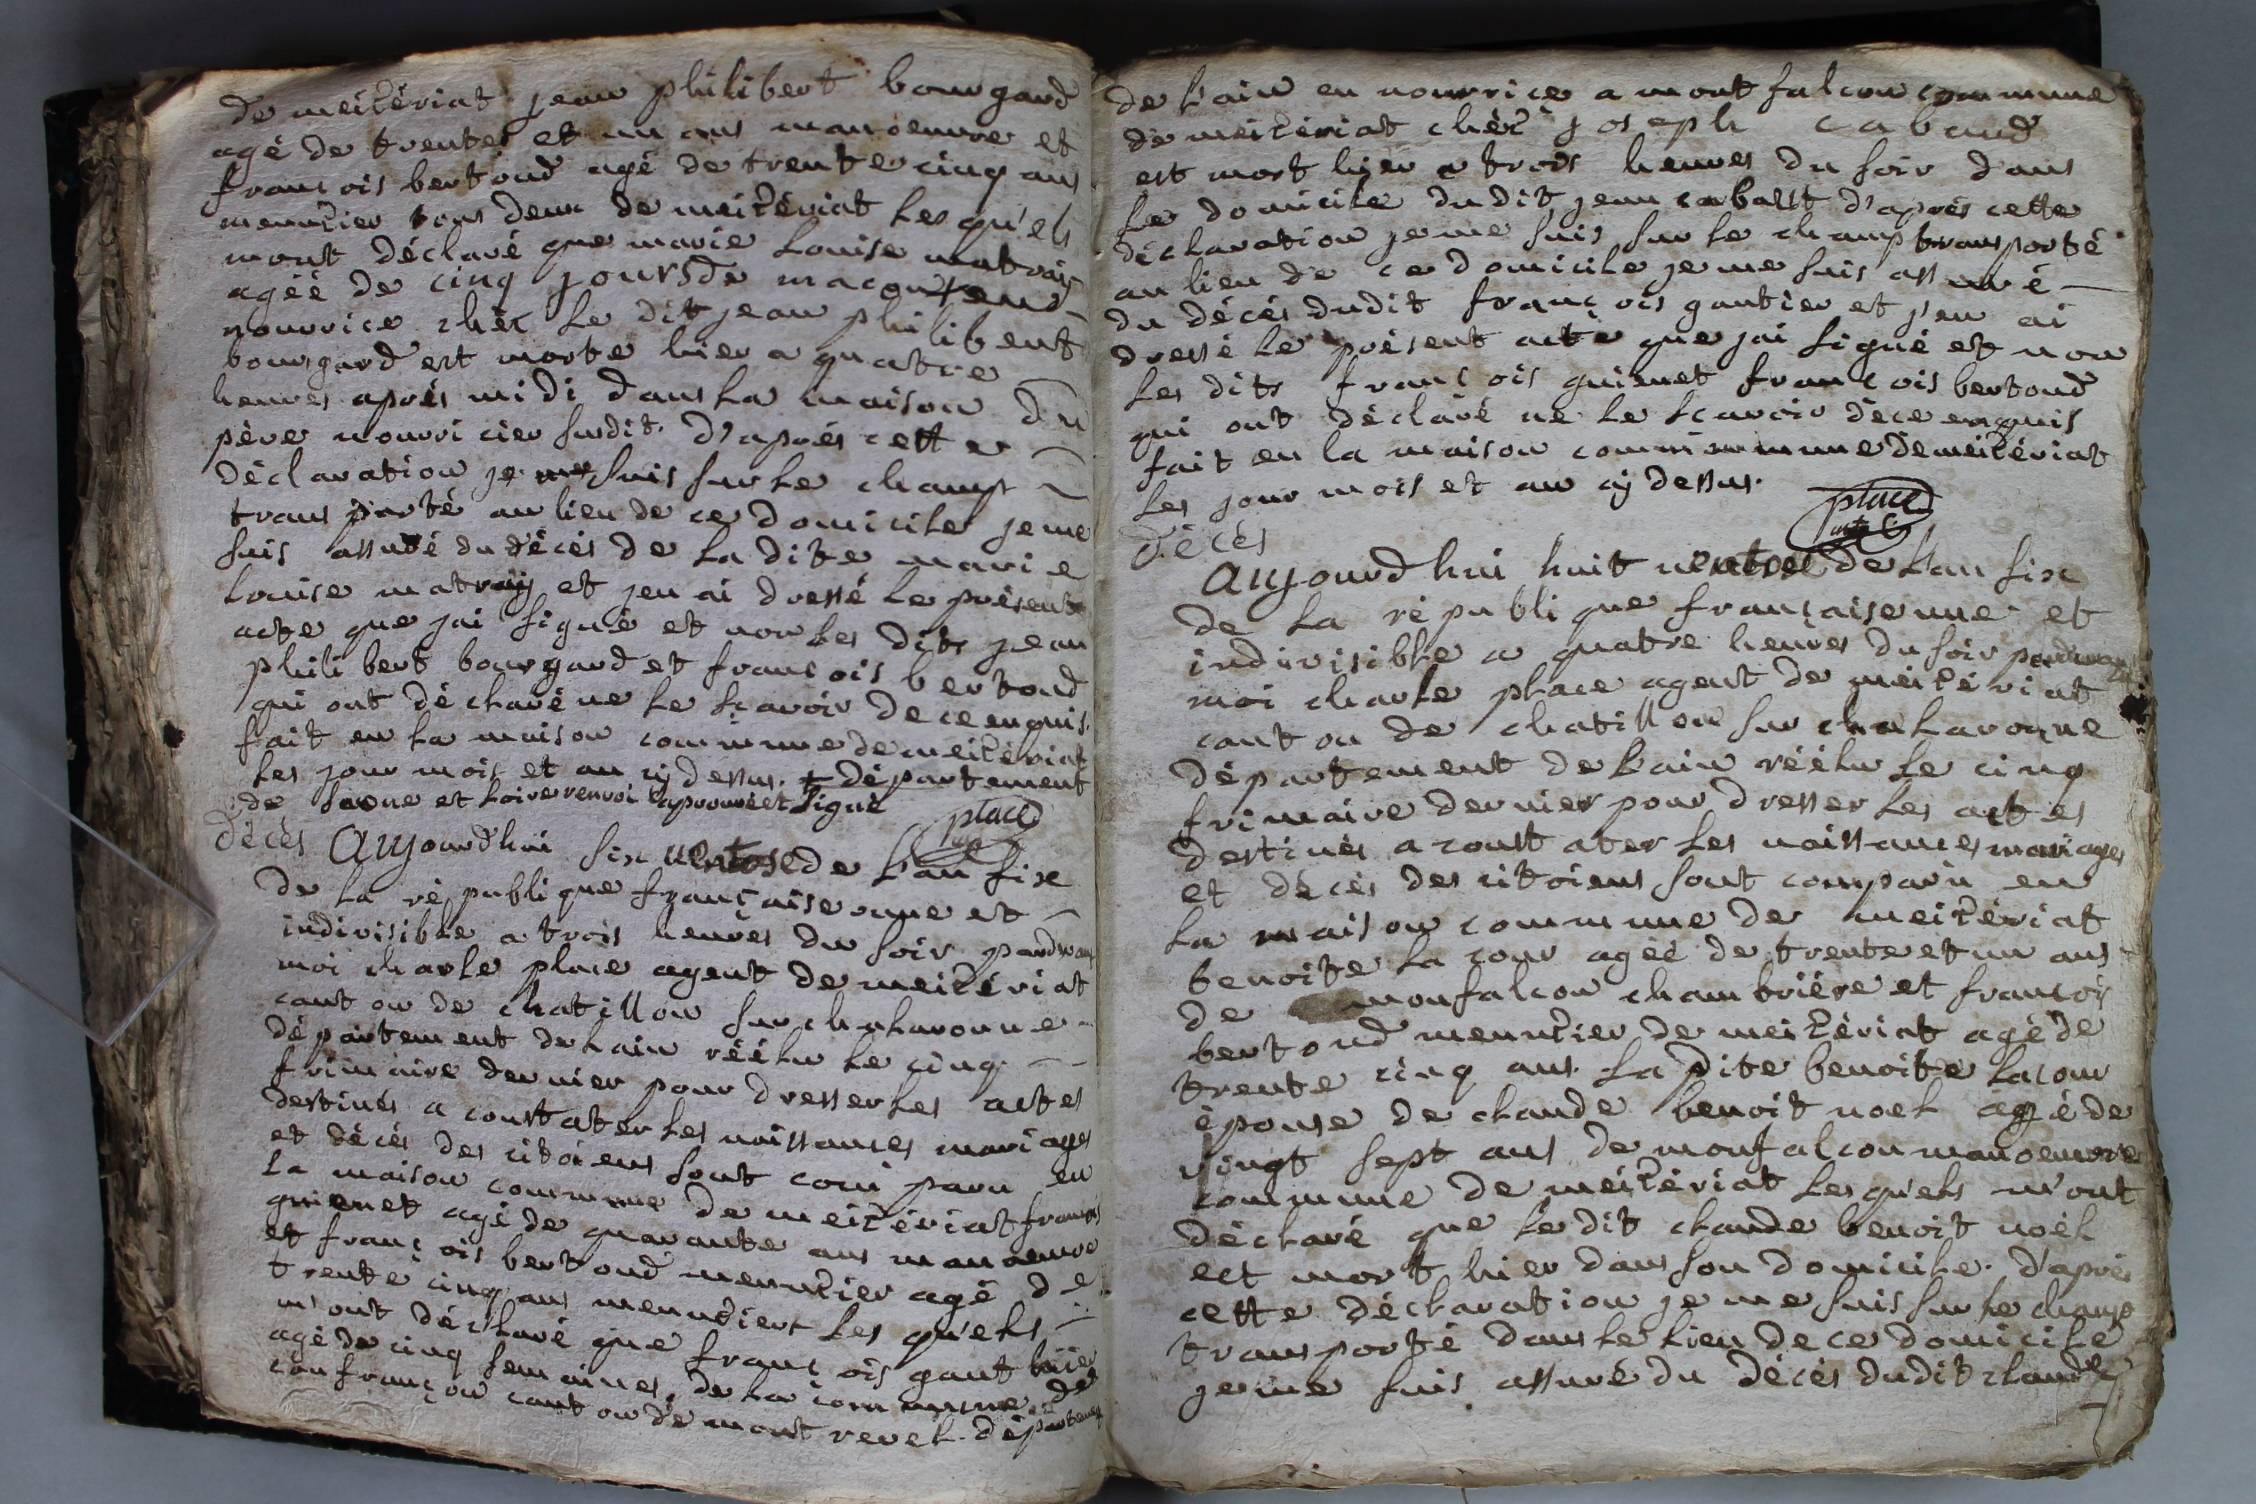 de meizériat jean philibert bourgard
agé de trentes et un ans manoeuvre et
françois bertoud agé de trente cinq ans
meunzier tous deux de meizériat lesqu'els
mont déclaré que marie louise matray
ageé de cinq jours de macon + en
nourrice chéz le dit jean philibert
bourgard est morte hier a quatre
heures aprés midi dans la maison du
pére nourricier susdit. d'aprés cette
déclaration je me suis sur le champ
transporté au lieu de ce domicile je me
suis assuré du décés de la dite marie
louise matray et jen ai dressé le présent
acte que jai signé et non les dits jean
philibert bourgard et françois bertoud
qui ont déclaré ne le sçavoir de ce enquis.
fait en la maison commune de meizériat
les jour mois et an cy dessus. + département
de saone et loire renvoi aprouvé et signé
place
agt
décés Aujourdhui six ventose de l'an six
de la république française une et
indivisible a trois heures du soir pardevan
moi charle place agent de meizériat
canton de chatillon sur chalaronne
département de lain réélu le cinq
frimaire dernier pour dresser les actes
destinés a constater les naissances mariages
et décés des citoiens sont comparu en
la maison commune de meizériat françois
guienet agé de quarante ans manoeuvre
et françois bertoud meunzier agé de
trente cinq ans meunziers lesqu'els
m'ont déclaré que françois gauthier
agé de cinq semaines, de la commune de
confrançon canton de montrevel. département
de l'ain en nourrice a montfalcon commune
de meizériat chéz joseph cabaud
est mort hier a trois heures du soir dans
le domicile du dit jean cabaut d'aprés cette
déclaration je me suis sur le champ transporté
au lieu de ce domicile je me suis assuré
du décés dudit françois gautier et j'en ai
dressé le présent acte que jai signé et non
les dits françois guienet françois bertoud
qui ont déclaré ne le scavoir de ce enquis
fait en la maison commune de meizériat
les jour mois et an cy dessus.
place
agt
décés
Aujourdhui huit ventose de l'an six
de la république française une et
indivisible a quatre heures du soir pardevant
moi charle place agent de meizériat
canton de chatillon sur chalaronne
département de l'ain réélu le cinq
frimaire dernier pour dresser les actes
destinés a constater les naissances mariages
et décés des citoiens sont comparu en
la maison commune de meizériat
benoite la cour ageé de trente et un ans
de monfalcon chambriére et françois
bertoud meunzier de meizériat agé de
trente cinq ans. la dite benoite lacour
épouse de claude benoit noel agé de
vingt sept ans de monfalcon manoeuvre
commune de meizériat lesqu'els m'ont
déclaré que le dit claude benoit noél
est mort hier dans son domicile. d'aprés
cette déclaration je me suis sur le champ
transporté dans le lieu de ce domicile
je me suis assuré du décés dudit claude